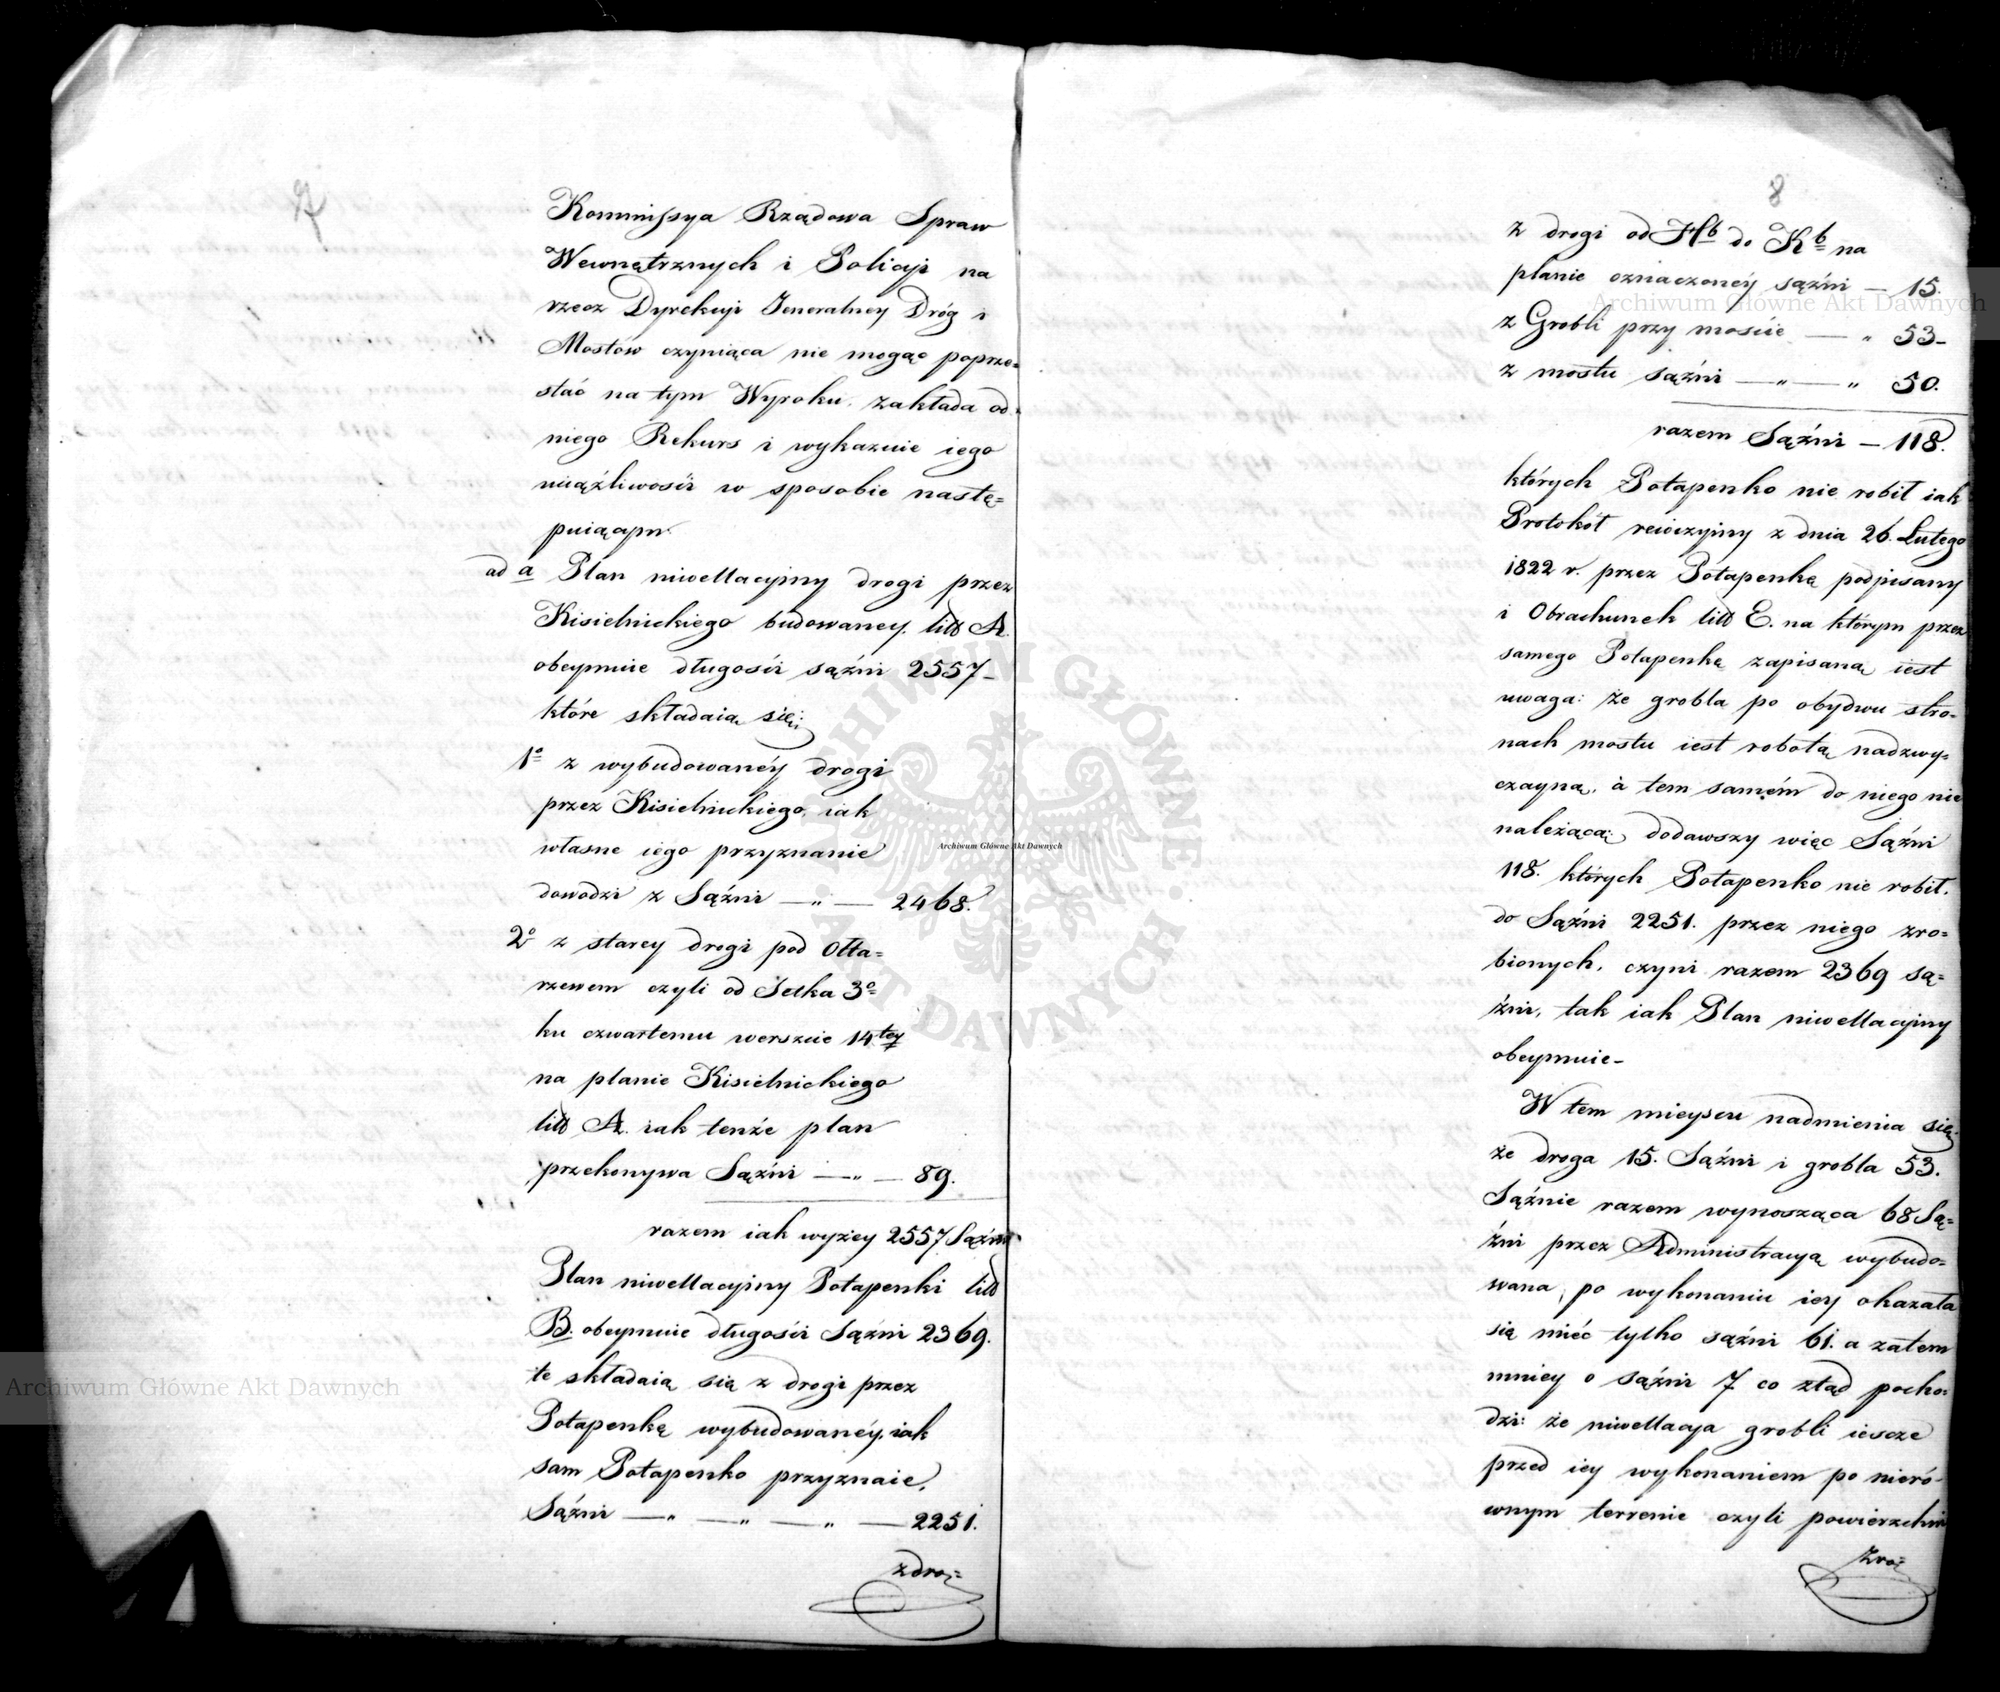 7
Kommissya Rządowa Spraw
Wewnętrznych i Policyi na
rzecz Dyrekcyi Jeneralney Dróg i
Mostów czyniąca nie mogąc poprze=
stać na tym Wyroku, zakłada od
niego Rekurs i wykazuie iego
uciążliwości w sposobie nastę=
puiącym
ad a Plan niwellacyjny drogi przez
Kisielnickiego budowaney. litt A.
obeymuie długości sążni 2557-
które składaią się:
1º z wybudowanéy drogi
przez Kisielnickiego, iak
własne iego przyznanie
dowodzi z Sążni — „ — 2468.
2º z starey drogi pod Ołta=
rzewem czyli od Setka 3º
ku czwartemu werszcie 14tey
na planie Kisielnickiego
litt A. iak tenże plan
przekonywa Sążni — „ — 89.
razem iak wyżey 2557 Sążni
Plan niwellacyjny Potapenki litt
B. obeymuie długości Sążni 2369.
te składaią się z drogi przez
Potapenkę wybudowanéy, iak
sam Potapenko przyznaie,
Sążni — „ — „ — „ — 2251.
z dro=
8
z drogi od Hb do Kb na
planie oznaczonéy sążni — 15.
z Grobli przy moście — „ 53-
z mostu sążni — „ — „ 50.
razem Sążni — 118.
których Potapenko nie robił iak
Protokół rewizyjny z dnia 26. Lutego
1822 r. przez Potapenkę podpisany
i Obrachunek litt E. na którym przez
samego Potapenkę zapisaną iest
uwaga: że grobla po obydwu stro-
nach mostu iest robotą nadzwy-
czayną, à tem samém do niego nie
należącą; dodawszy więc Sążni
118. których Potapenko nie robił.
do Sążni 2251. przez niego zro=
bionych, czyni razem 2369 są=
żni, tak iak Plan niwellacyjny
obeymuie-
W tem mieyscu nadmienia się
że droga 15. Sążni i grobla 53.
Sążnie razem wynosząca 68 Są=
żni przez Administracyą wybudo=
wana, po wykonaniu iey okazała
się mieć tylko sążni 61. a zatem
mniey o sążni 7 co ztąd pocho=
dzi: że niwellacya grobli ieszcze
przed iey wykonaniem po nieró-
wnym terrenie czyli powierzchni
zro=
Archiwum Główne Akt Dawnych
Archiwum Główne Akt Dawnych
Archiwum Główne Akt Dawnych
ARCHIWUM GŁÓWNE AKT DAWNYCH